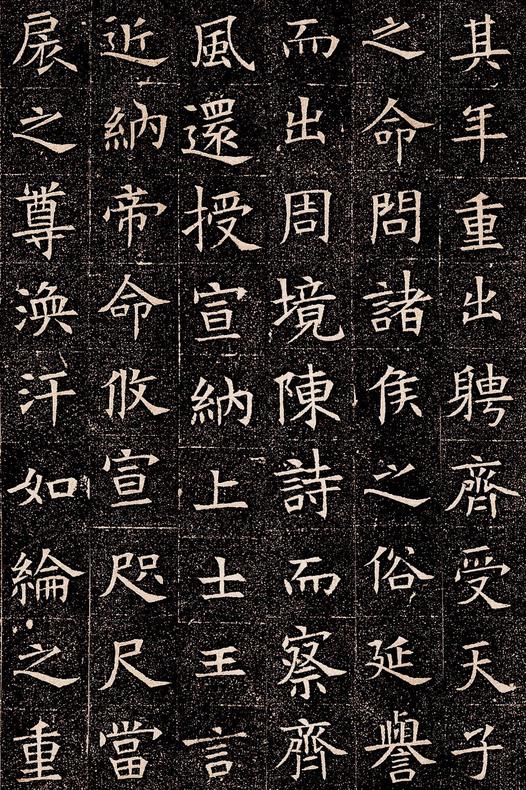 其年重出聘齊受天子
之命問諸侯之俗延譽
而出周境陳詩而察齊
風還授宣納上士王言
近納帝命攸宣咫尺當
扆之尊渙汗如綸之重